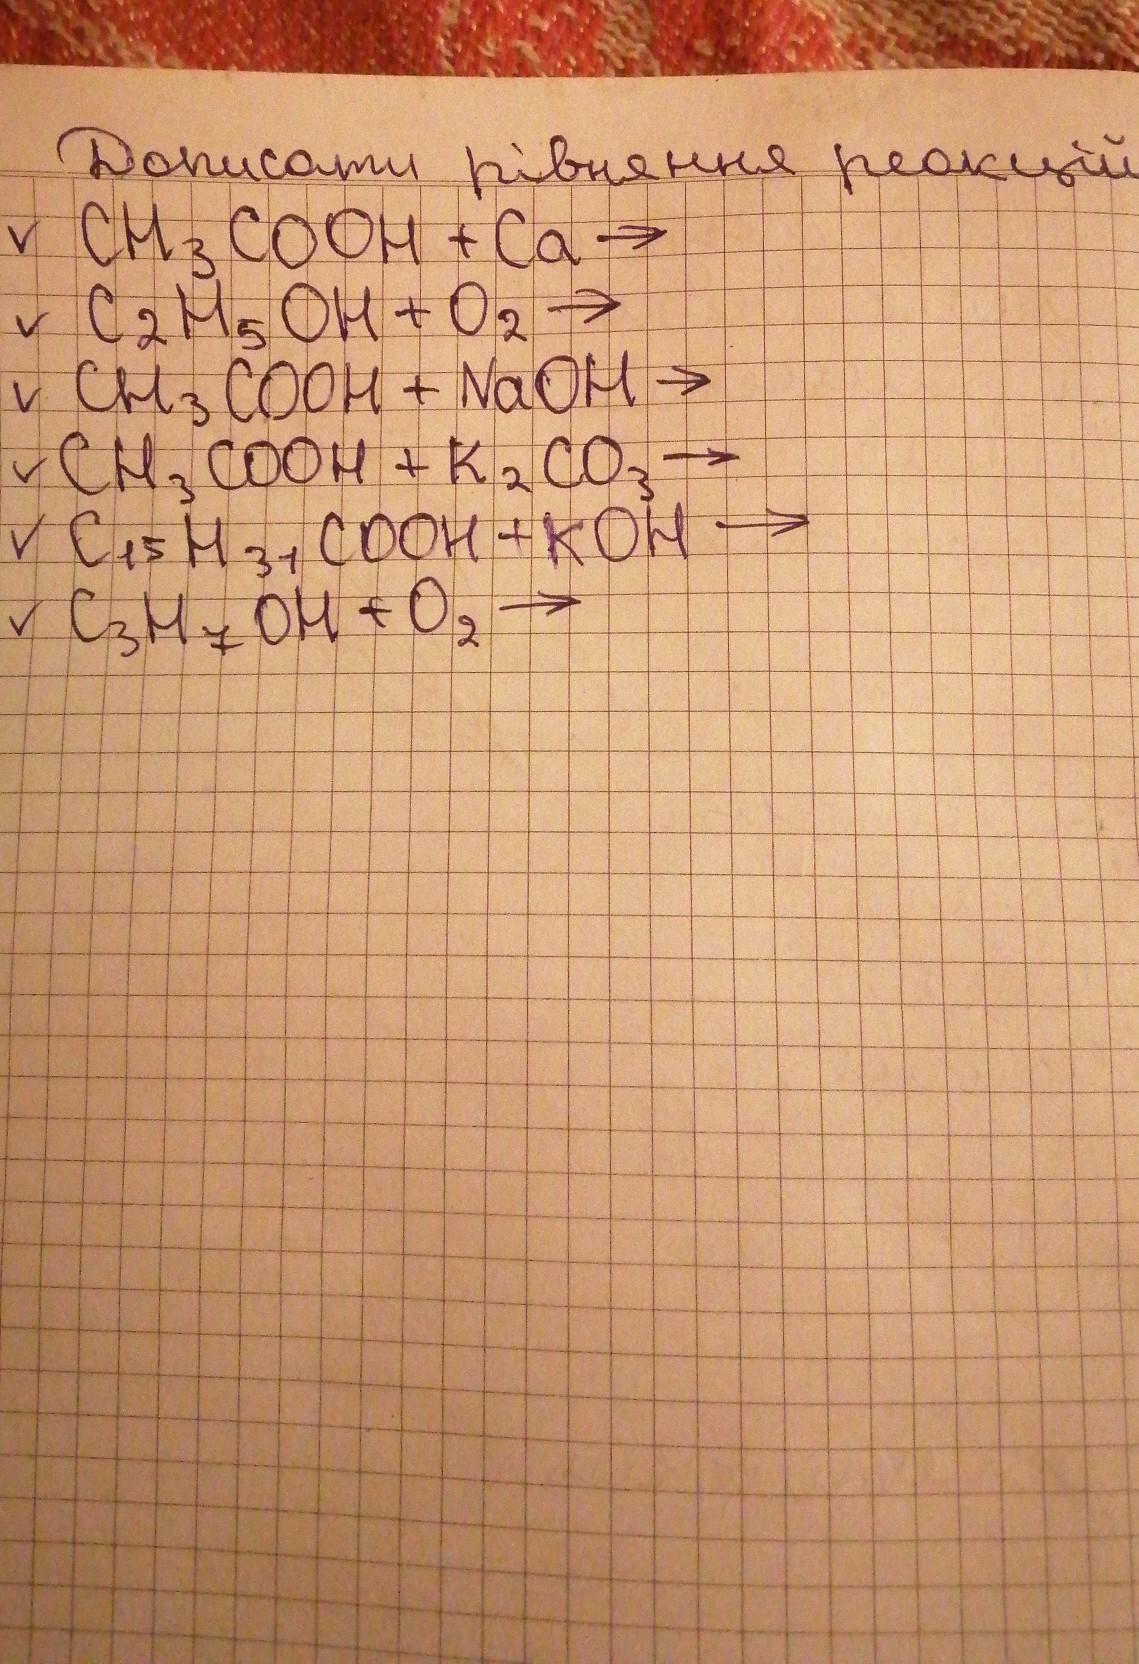 Дописати рівняння реакцій
✓ CH₃COOH + Ca →
✓ C₂H₅OH + O₂ →
✓ CH₃COOH + NaOH →
✓ CH₃COOH + K₂CO₃ →
✓ C₁₅H₃₁COOH + KOH →
✓ C₃H₇OH + O₂ →